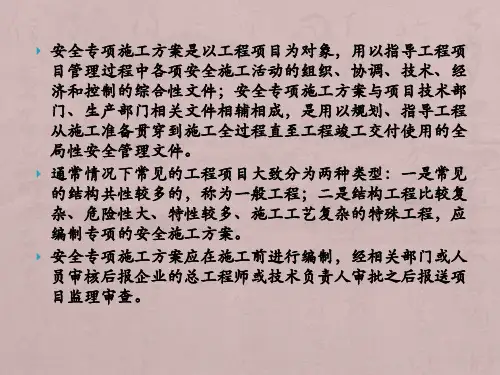 安全专项施工方案是以工程项目为对象，用以指导工程项
目管理过程中各项安全施工活动的组织、协调、技术、经
济和控制的综合性文件；安全专项施工方案与项目技术部
门、生产部门相关文件相辅相成，是用以规划、指导工程
从施工准备贯穿到施工全过程直至工程竣工交付使用的全
局性安全管理文件。
通常情况下常见的工程项目大致分为两种类型：一是常见
的结构共性较多的，称为一般工程；二是结构工程比较复
杂、危险性大、特性较多、施工工艺复杂的特殊工程，应
编制专项的安全施工方案。
安全专项施工方案应在施工前进行编制，经相关部门或人
员审核后报企业的总工程师或技术负责人审批之后报送项
目监理审查。